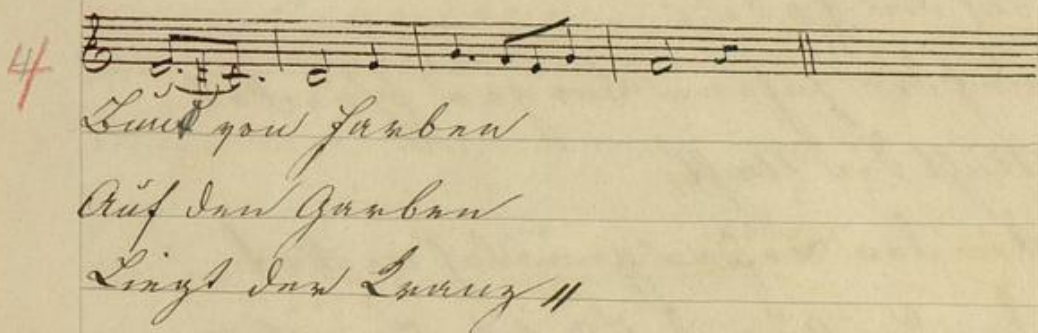 4
Bunt von Farben
Auf den Garben
Liegt der Kranz "